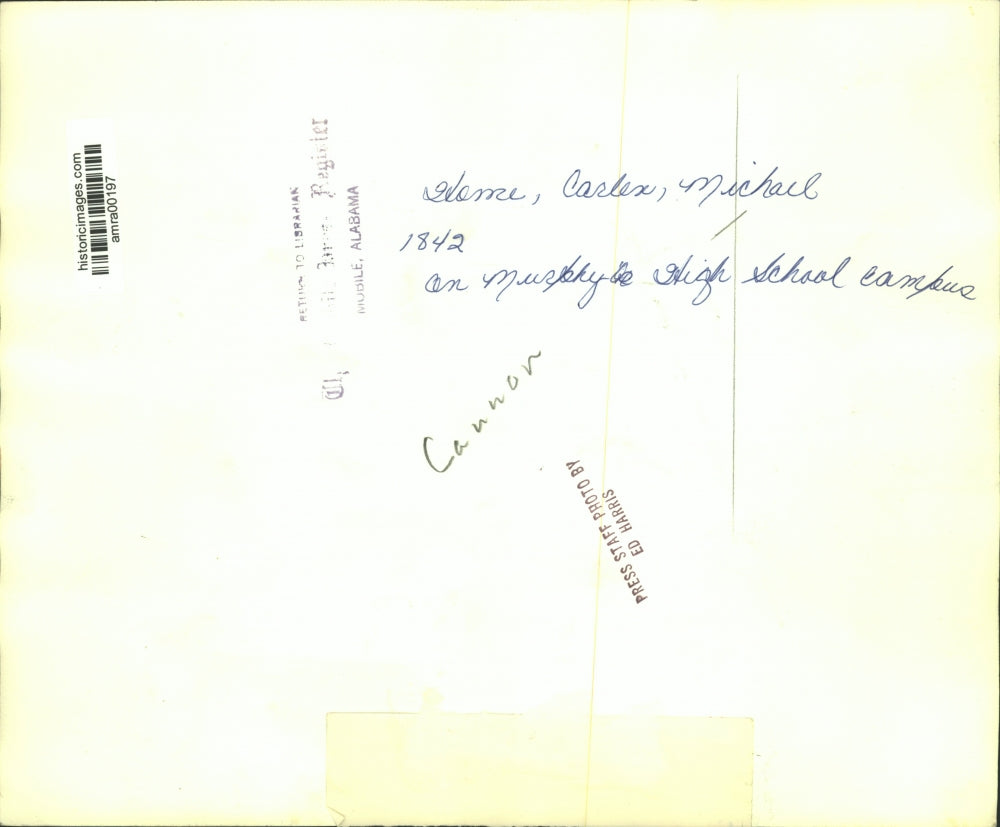 historicimages.com
amra00197
RETURN TO LIBRARIAN
Register
MOBILE, ALABAMA
Home, Carlen, Michael
1842
on Murphy High School campus
Cannon
PRESS STAFF PHOTO BY
ED HARRIS